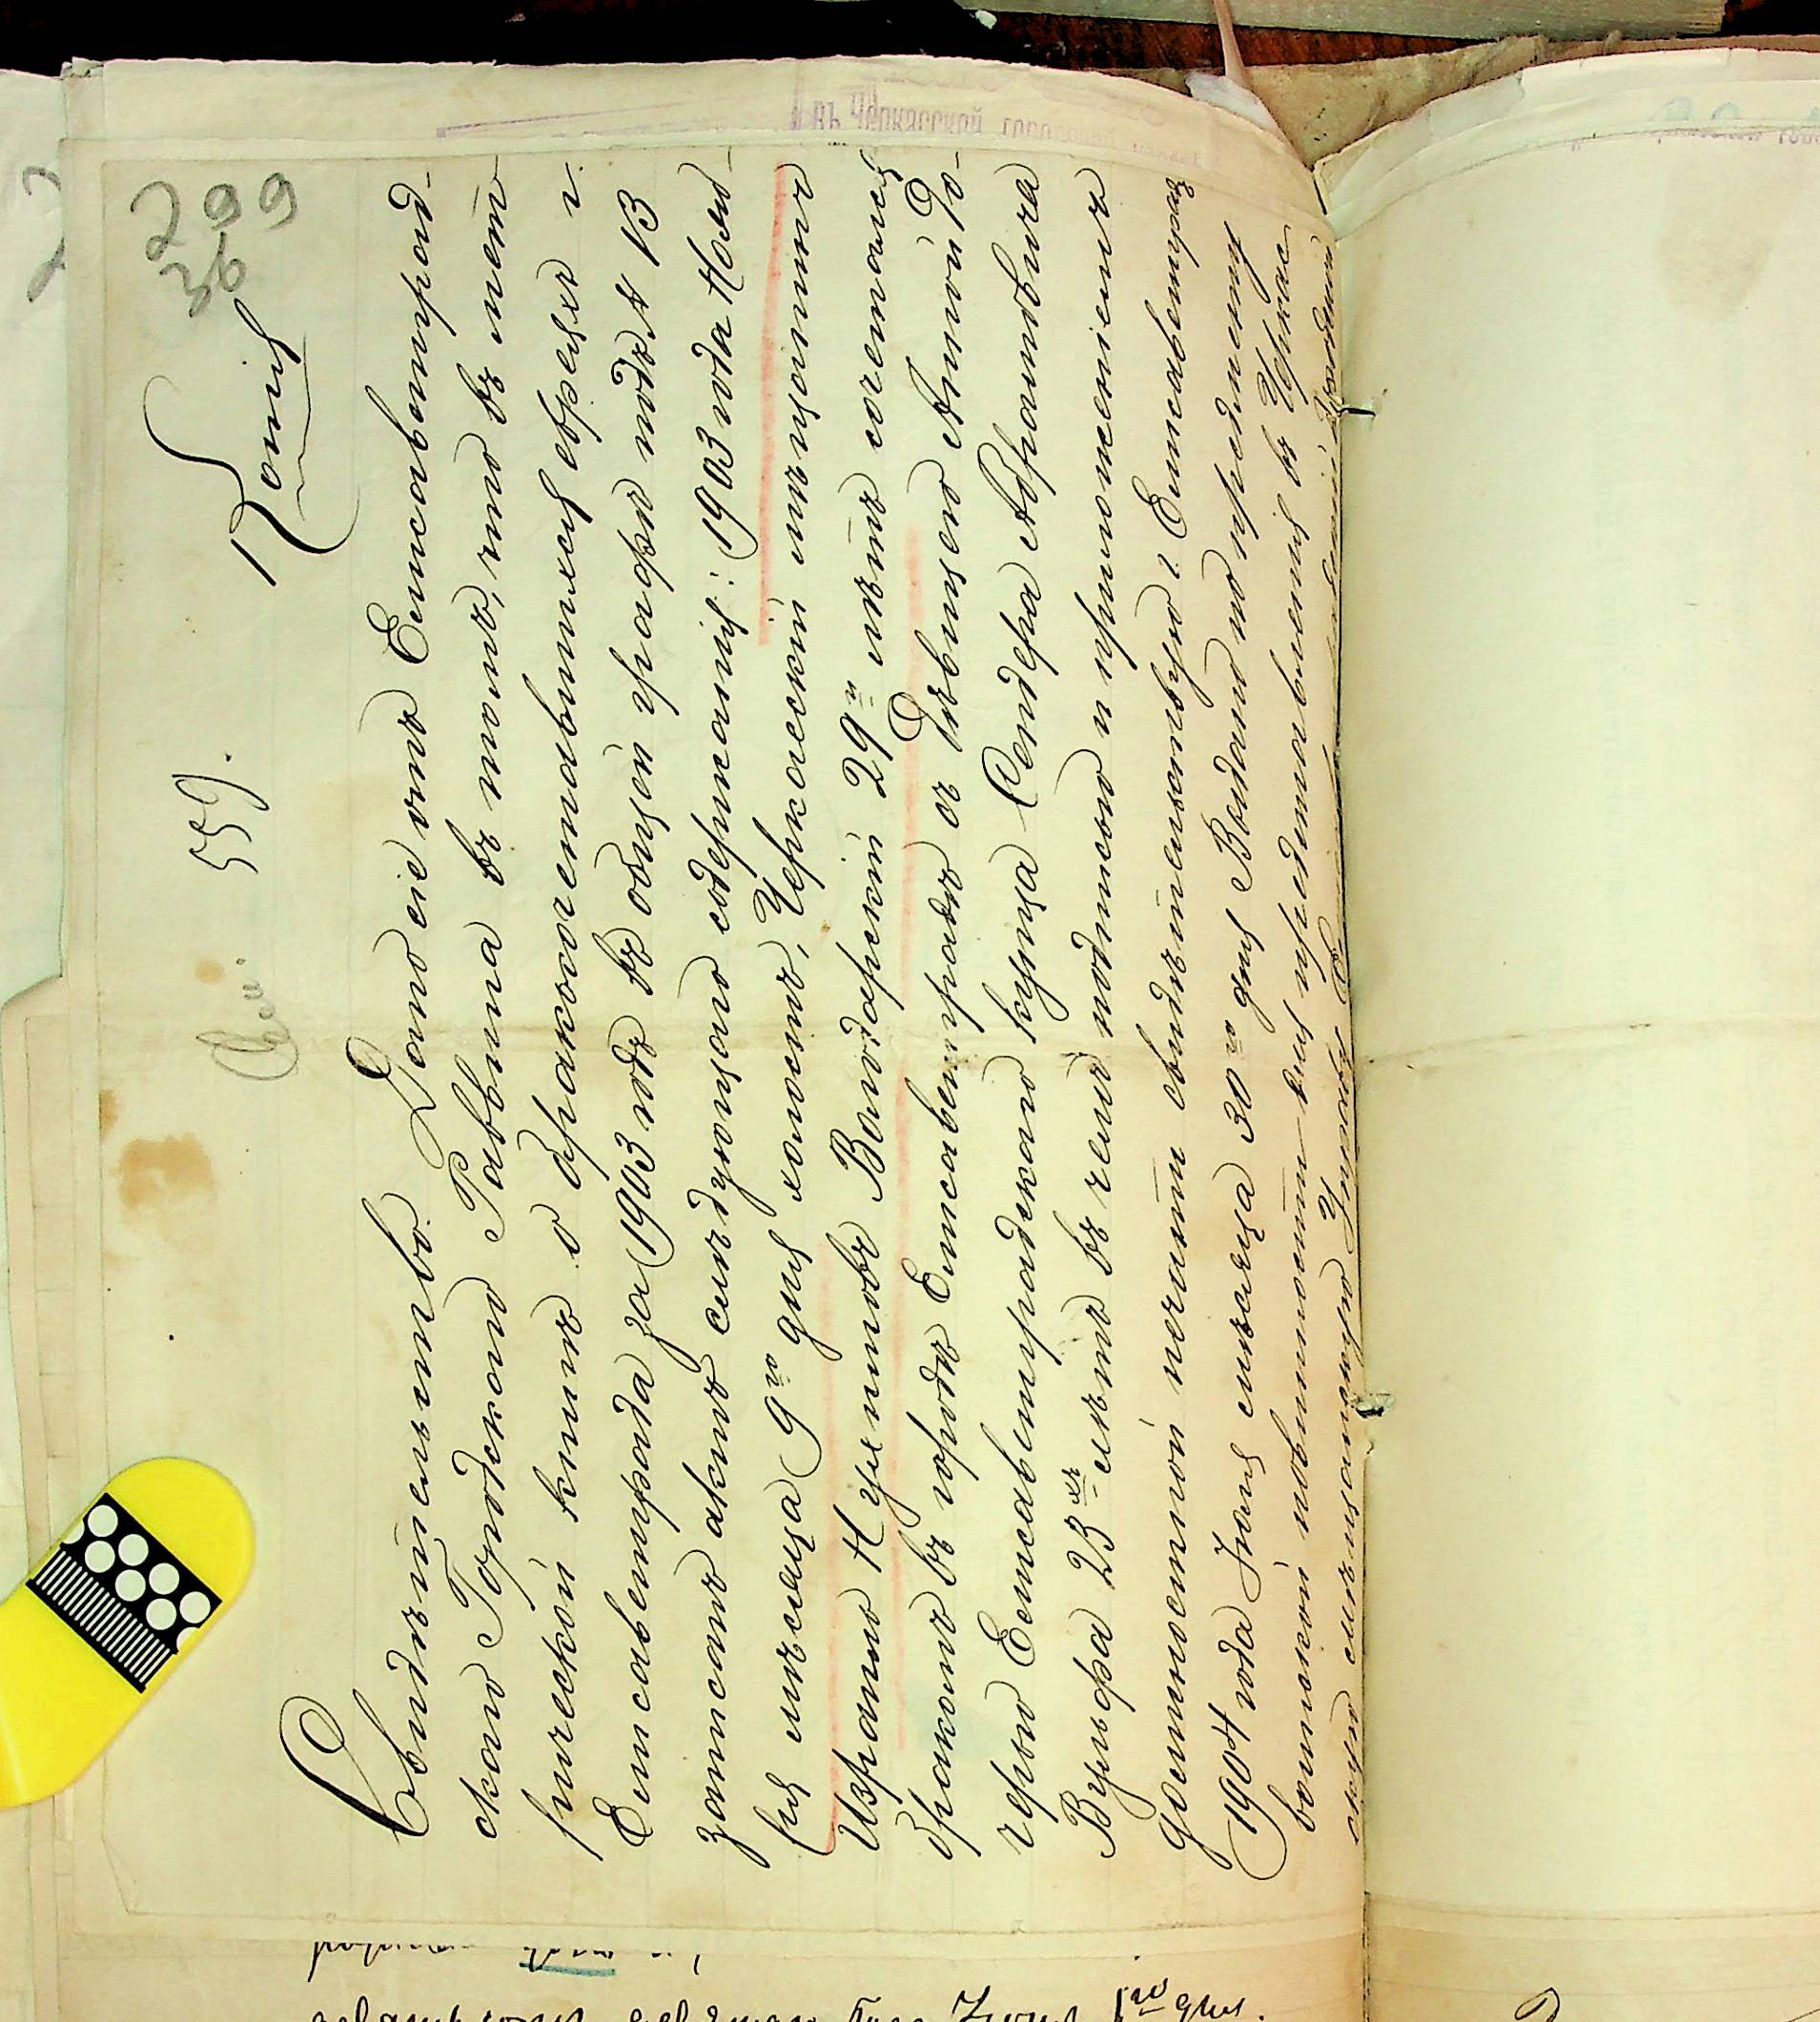 299
36
Копія
См. 559.
Свидѣтельство. Дано сіе отъ Елисаветград-
скаго Городского Раввина въ томъ, что въ мет-
рической книгѣ о бракосочетавшихся евреяхъ г.
Елисаветграда за 1903 годъ въ общей графѣ подъ № 13
записанъ актъ слѣдующаго содержанія: 1903 года Нояб-
ря мѣсяца 9го дня холостъ, Черкасскій мѣщанинъ
Израиль Нухимовъ Володарскій 29и лѣтъ сочетался
бракомъ въ городѣ Елисаветградѣ съ дѣвицею Анной до-
черью Елисаветградскаго купца Сендера Абрамовича
Вульфа 23хъ лѣтъ въ чемъ подписью и приложеніемъ
должностной печати свидѣтельствую г. Елисаветградъ
1904 года Іюля мѣсяца 30го дня Выдано по предмету
воинской повинности для представленія въ Черкас-
скую мѣщанскую Управу
въ Черкасской